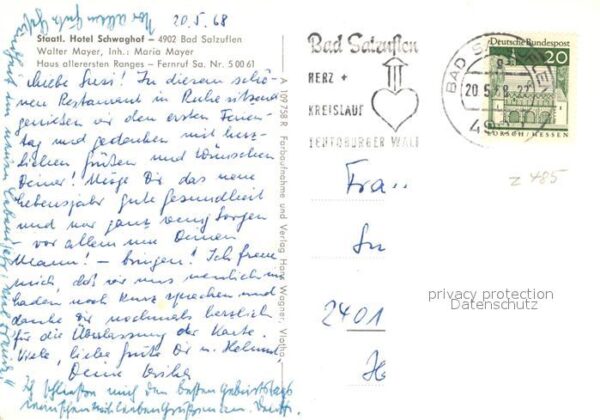 Vor allem gute Ge-
20.5.68
Staatl. Hotel Schwaghof – 4902 Bad Salzuflen
Walter Mayer, Inh.: Maria Mayer
Haus allerersten Ranges – Fernruf Sa. Nr. 5 00 61
Liebe Susi! In diesem schö-
nen Restaurant in Ruhe sitzend
genießen wir den ersten Ferien-
tag und gedenken mit herz-
lichen Grüßen und Wünschen
Deiner! Möge Dir das neue
Lebensjahr gute Gesundheit
und nur ganz wenig Sorgen
– vor allem um Deinen
Mann! – bringen! Ich freue
mich, daß wir uns neulich im
Laden noch kurz sprechen und
danke Dir nochmals herzlich
für die Überlassung der Karte.
Viele, liebe Grüße Dir u. Helmut,
Deine
Ich schließe mich den besten Geburtstags
wünschen
im neuen Lebensjahr
A 109758 R Farbaufnahme und Verlag Hans Wagner, Vlotho
Bad Salzuflen
HERZ +
KREISLAUF
TEUTOBURGER WALD
BAD SALZUFLEN
20.5.68
Deutsche Bundespost
20
LORSCH/HESSEN
z 485
Fra
Su
2401
H
privacy protection
Datenschutz